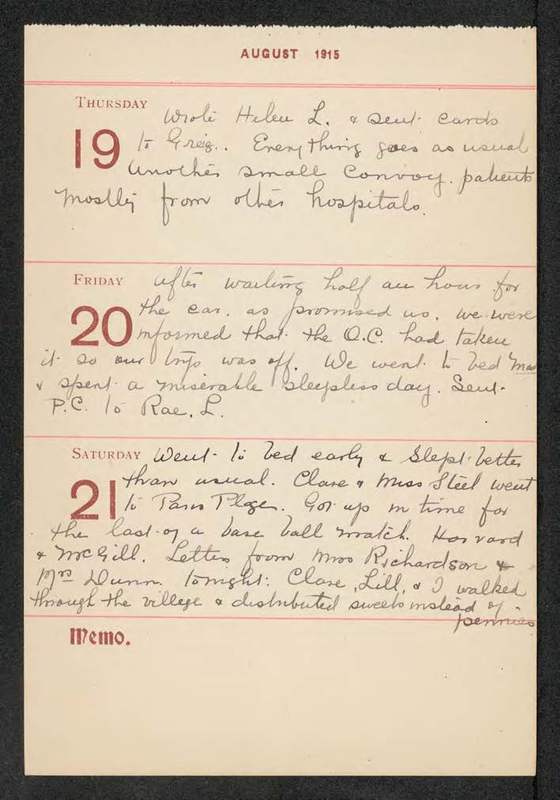 AUGUST 1915
THURSDAY
19
Wrote Helen L. & sent cards
to Greig. Everything goes as usual
Another small convoy. patients
mostly from other hospitals.
FRIDAY
20
After waiting half an hour for
the car, as promised us, we were
informed that the O.C. had taken
it so our trip was off. We went to bed mad
& spent a miserable sleepless day. Sent
P.C. to Rae. L.
SATURDAY
21
Went to bed early & slept better
than usual. Clare & Miss Steel went
to Paris Plage. Got up in time for
the last of a base ball match. Harvard
& McGill. Letter from Miss Richardson &
Mrs Dunn tonight. Clare, Lill, & I walked
through the village & distributed sweets instead of
pennies
Memo.